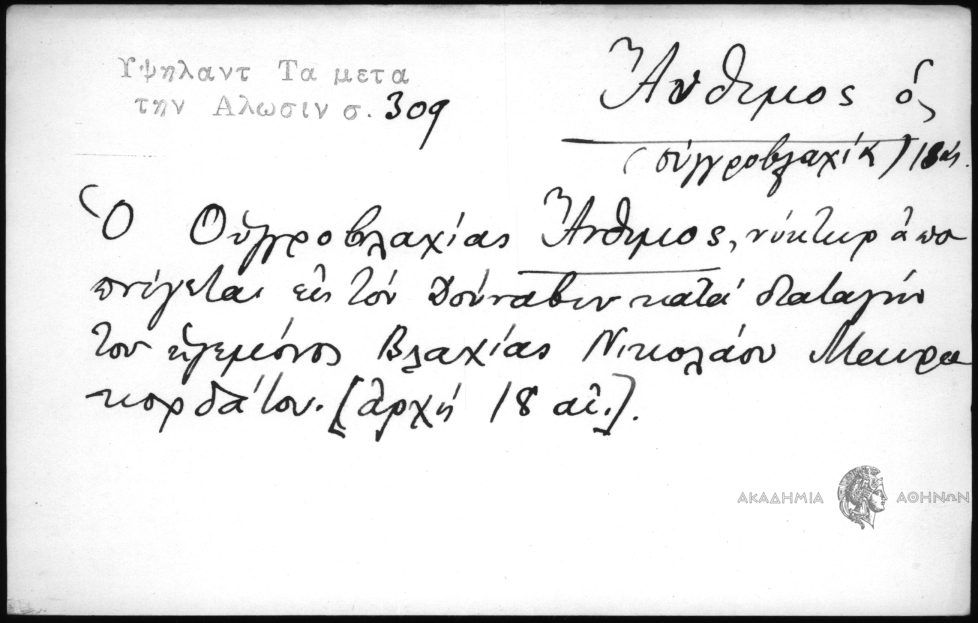 Υψηλαντ Τα μετα
την Αλωσιν σ. 309
Ἄνθιμος ὁ
(Οὐγγροβλαχίας) 18 αἰ.
Ὁ Οὐγγροβλαχίας Ἄνθιμος, νύκτωρ ἀπο
πνίγεται εἰς τὸν Δούναβιν κατὰ διαταγὴν
τοῦ ἡγεμόνος Βλαχίας Νικολάου Μαυρο
κορδάτου. [ἀρχὴ 18 αἰ.].
ΑΚΑΔΗΜΙΑ ΑΘΗΝΩΝ